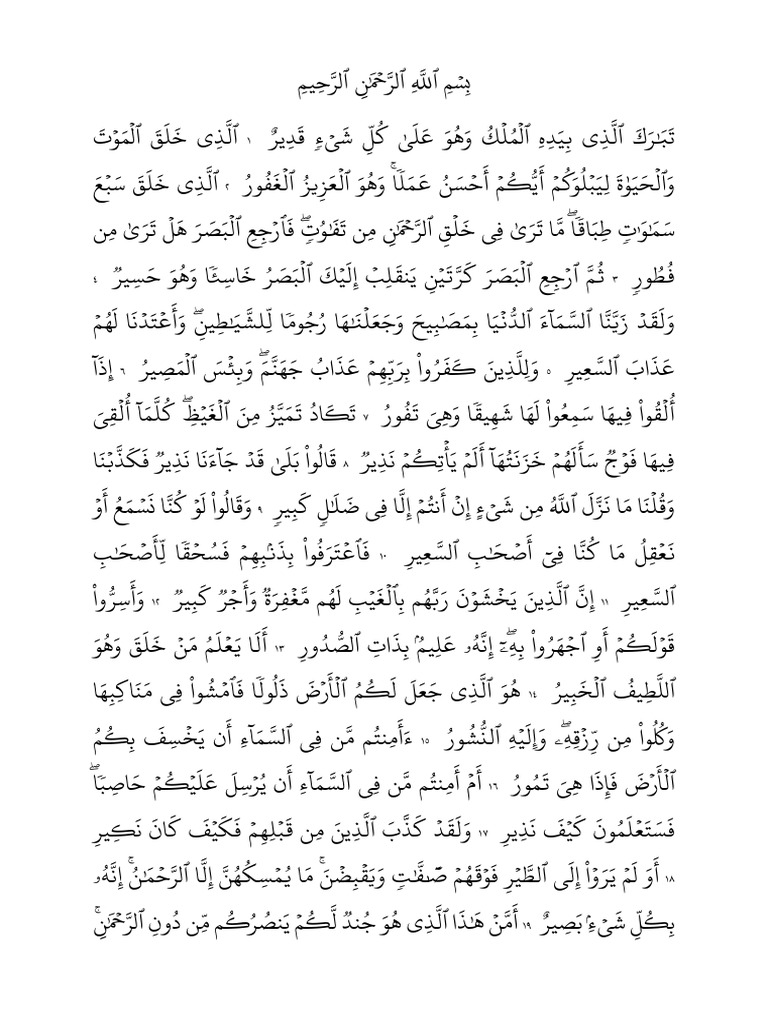 بِسۡمِ ٱللَّهِ ٱلرَّحۡمَٰنِ ٱلرَّحِيمِ
تَبَٰرَكَ ٱلَّذِى بِيَدِهِ ٱلۡمُلۡكُ وَهُوَ عَلَىٰ كُلِّ شَىۡءٖ قَدِيرٌ ١ ٱلَّذِى خَلَقَ ٱلۡمَوۡتَ
وَٱلۡحَيَوٰةَ لِيَبۡلُوَكُمۡ أَيُّكُمۡ أَحۡسَنُ عَمَلٗاۚ وَهُوَ ٱلۡعَزِيزُ ٱلۡغَفُورُ ٢ ٱلَّذِى خَلَقَ سَبۡعَ
سَمَٰوَٰتٖ طِبَاقٗاۖ مَّا تَرَىٰ فِى خَلۡقِ ٱلرَّحۡمَٰنِ مِن تَفَٰوُتٖۖ فَٱرۡجِعِ ٱلۡبَصَرَ هَلۡ تَرَىٰ مِن
فُطُورٖ ٣ ثُمَّ ٱرۡجِعِ ٱلۡبَصَرَ كَرَّتَيۡنِ يَنقَلِبۡ إِلَيۡكَ ٱلۡبَصَرُ خَاسِئٗا وَهُوَ حَسِيرٞ ٤
وَلَقَدۡ زَيَّنَّا ٱلسَّمَآءَ ٱلدُّنۡيَا بِمَصَٰبِيحَ وَجَعَلۡنَٰهَا رُجُومٗا لِّلشَّيَٰطِينِۖ وَأَعۡتَدۡنَا لَهُمۡ
عَذَابَ ٱلسَّعِيرِ ٥ وَلِلَّذِينَ كَفَرُواْ بِرَبِّهِمۡ عَذَابُ جَهَنَّمَۖ وَبِئۡسَ ٱلۡمَصِيرُ ٦ إِذَآ
أُلۡقُواْ فِيهَا سَمِعُواْ لَهَا شَهِيقٗا وَهِىَ تَفُورُ ٧ تَكَادُ تَمَيَّزُ مِنَ ٱلۡغَيۡظِۖ كُلَّمَآ أُلۡقِىَ
فِيهَا فَوۡجٞ سَأَلَهُمۡ خَزَنَتُهَآ أَلَمۡ يَأۡتِكُمۡ نَذِيرٞ ٨ قَالُواْ بَلَىٰ قَدۡ جَآءَنَا نَذِيرٞ فَكَذَّبۡنَا
وَقُلۡنَا مَا نَزَّلَ ٱللَّهُ مِن شَىۡءٍ إِنۡ أَنتُمۡ إِلَّا فِى ضَلَٰلٖ كَبِيرٖ ٩ وَقَالُواْ لَوۡ كُنَّا نَسۡمَعُ أَوۡ
نَعۡقِلُ مَا كُنَّا فِىٓ أَصۡحَٰبِ ٱلسَّعِيرِ ١٠ فَٱعۡتَرَفُواْ بِذَنۢبِهِمۡ فَسُحۡقٗا لِّأَصۡحَٰبِ
ٱلسَّعِيرِ ١١ إِنَّ ٱلَّذِينَ يَخۡشَوۡنَ رَبَّهُم بِٱلۡغَيۡبِ لَهُم مَّغۡفِرَةٞ وَأَجۡرٞ كَبِيرٞ ١٢ وَأَسِرُّواْ
قَوۡلَكُمۡ أَوِ ٱجۡهَرُواْ بِهِۦٓۖ إِنَّهُۥ عَلِيمُۢ بِذَاتِ ٱلصُّدُورِ ١٣ أَلَا يَعۡلَمُ مَنۡ خَلَقَ وَهُوَ
ٱللَّطِيفُ ٱلۡخَبِيرُ ١٤ هُوَ ٱلَّذِى جَعَلَ لَكُمُ ٱلۡأَرۡضَ ذَلُولٗا فَٱمۡشُواْ فِى مَنَاكِبِهَا
وَكُلُواْ مِن رِّزۡقِهِۦۖ وَإِلَيۡهِ ٱلنُّشُورُ ١٥ ءَأَمِنتُم مَّن فِى ٱلسَّمَآءِ أَن يَخۡسِفَ بِكُمُ
ٱلۡأَرۡضَ فَإِذَا هِىَ تَمُورُ ١٦ أَمۡ أَمِنتُم مَّن فِى ٱلسَّمَآءِ أَن يُرۡسِلَ عَلَيۡكُمۡ حَاصِبٗاۖ
فَسَتَعۡلَمُونَ كَيۡفَ نَذِيرِ ١٧ وَلَقَدۡ كَذَّبَ ٱلَّذِينَ مِن قَبۡلِهِمۡ فَكَيۡفَ كَانَ نَكِيرِ
١٨ أَوَ لَمۡ يَرَوۡاْ إِلَى ٱلطَّيۡرِ فَوۡقَهُمۡ صَٰٓفَّٰتٖ وَيَقۡبِضۡنَۚ مَا يُمۡسِكُهُنَّ إِلَّا ٱلرَّحۡمَٰنُۚ إِنَّهُۥ
بِكُلِّ شَىۡءِۭ بَصِيرٌ ١٩ أَمَّنۡ هَٰذَا ٱلَّذِى هُوَ جُندٞ لَّكُمۡ يَنصُرُكُم مِّن دُونِ ٱلرَّحۡمَٰنِۚ